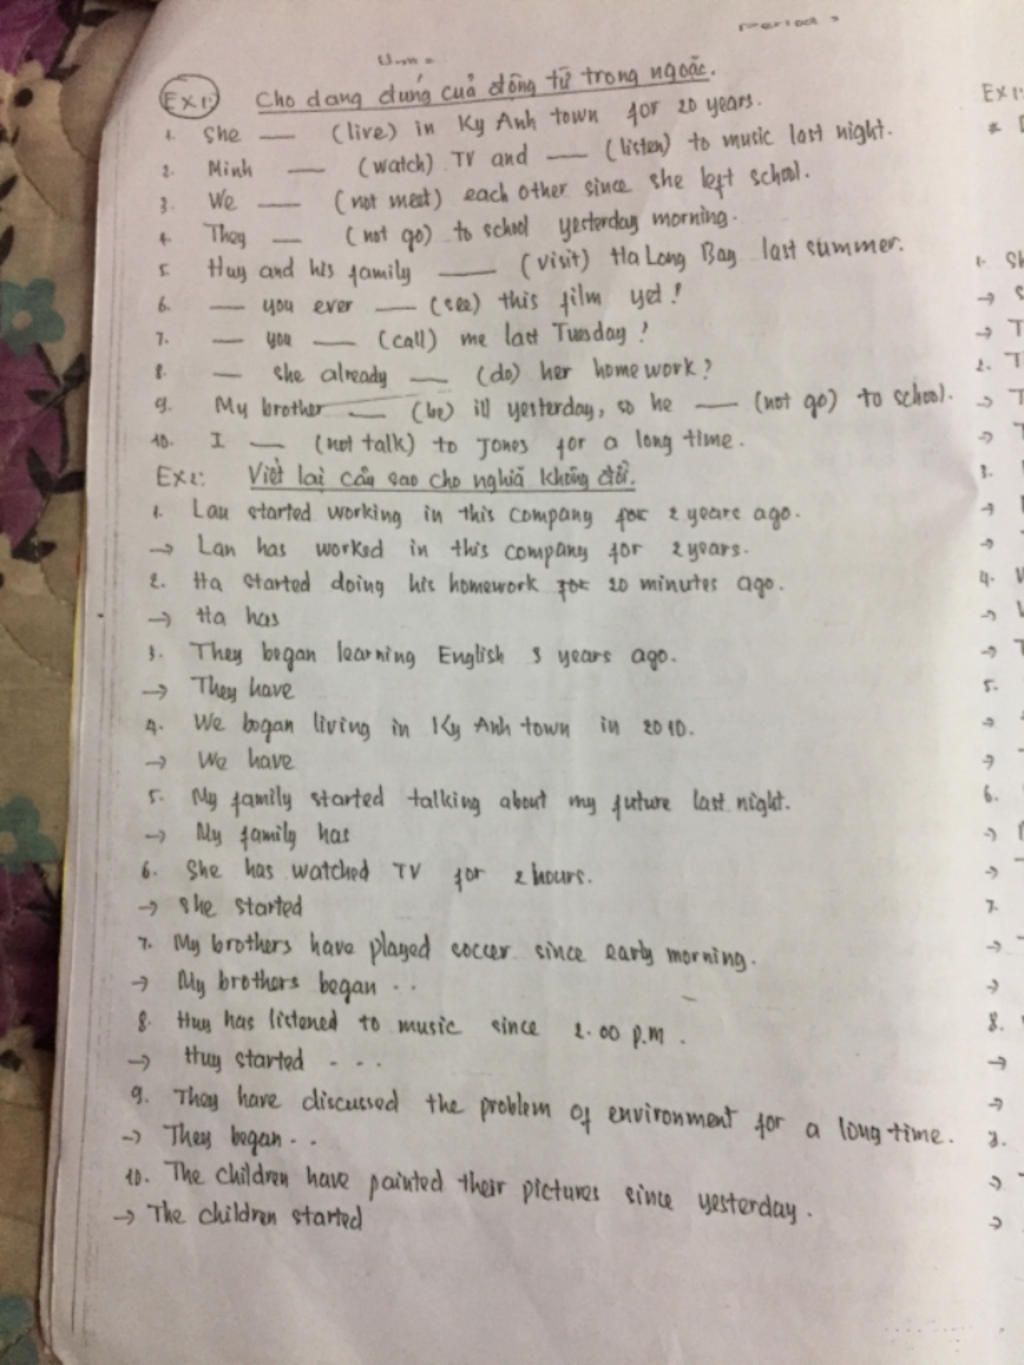 Period
Ex1: Cho dang dúng cuả động từ trong ngoặc.
1. She — (live) in Ky Anh town for 20 years.
2. Minh — (watch) TV and — (listen) to music last night.
3. We — (not meet) each other since she left school.
4. They — (not go) to school yesterday morning.
5. Huy and his family — (visit) Ha Long Bay last summer.
6. — you ever — (see) this film yet?
7. — you — (call) me last Tuesday?
8. — she already — (do) her homework?
9. My brother — (be) ill yesterday, so he — (not go) to school.
10. I — (not talk) to Jones for a long time.
Ex2: Viết laị câu sao cho nghiã không đổi.
1. Lan started working in this company for 2 years ago.
→ Lan has worked in this company for 2 years.
2. Ha started doing his homework for 20 minutes ago.
→ Ha has
3. They began learning English 3 years ago.
→ They have
4. We began living in Ky Anh town in 2010.
→ We have
5. My family started talking about my future last night.
→ My family has
6. She has watched TV for 2 hours.
→ She started
7. My brothers have played soccer since early morning.
→ My brothers began ..
8. Huy has listened to music since 2.00 p.m.
→ Huy started ...
9. They have discussed the problem of environment for a long time.
→ They began ..
10. The children have painted their pictures since yesterday.
→ The children started
Ex1:
1. Sh
→ S
→ T
2. T
→ T
→ T
3.
→
→
4. W
→
→ T
5.
→
→
6.
→
→
7.
→
→
8.
→
→
9.
→
→